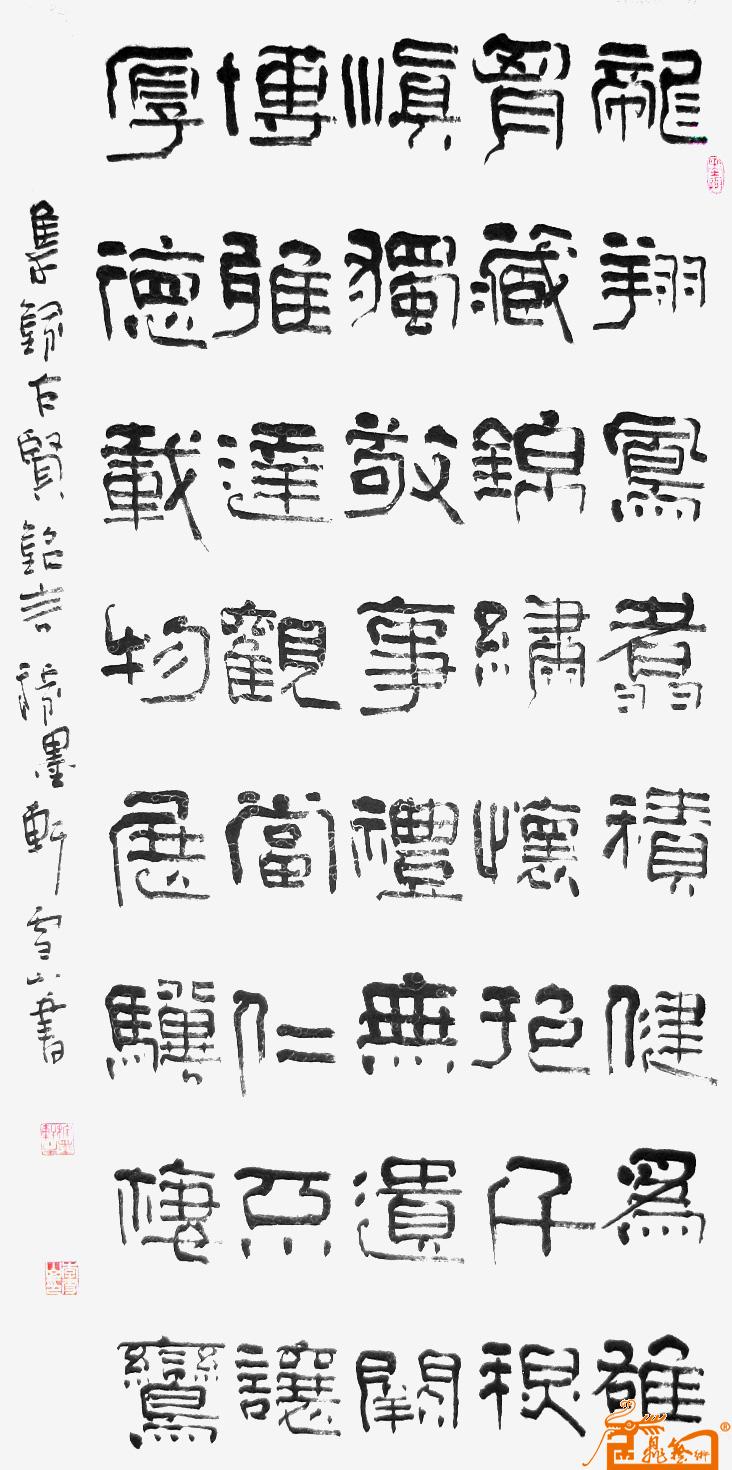 龍翔鳳翥積健為雄
胷藏錦繡懷抱千
慎獨敬事禮無遺闕
博雅達觀當仁不讓
厚德載物展驥棲鸞
集錄古賢銘言 墨軒雪山書